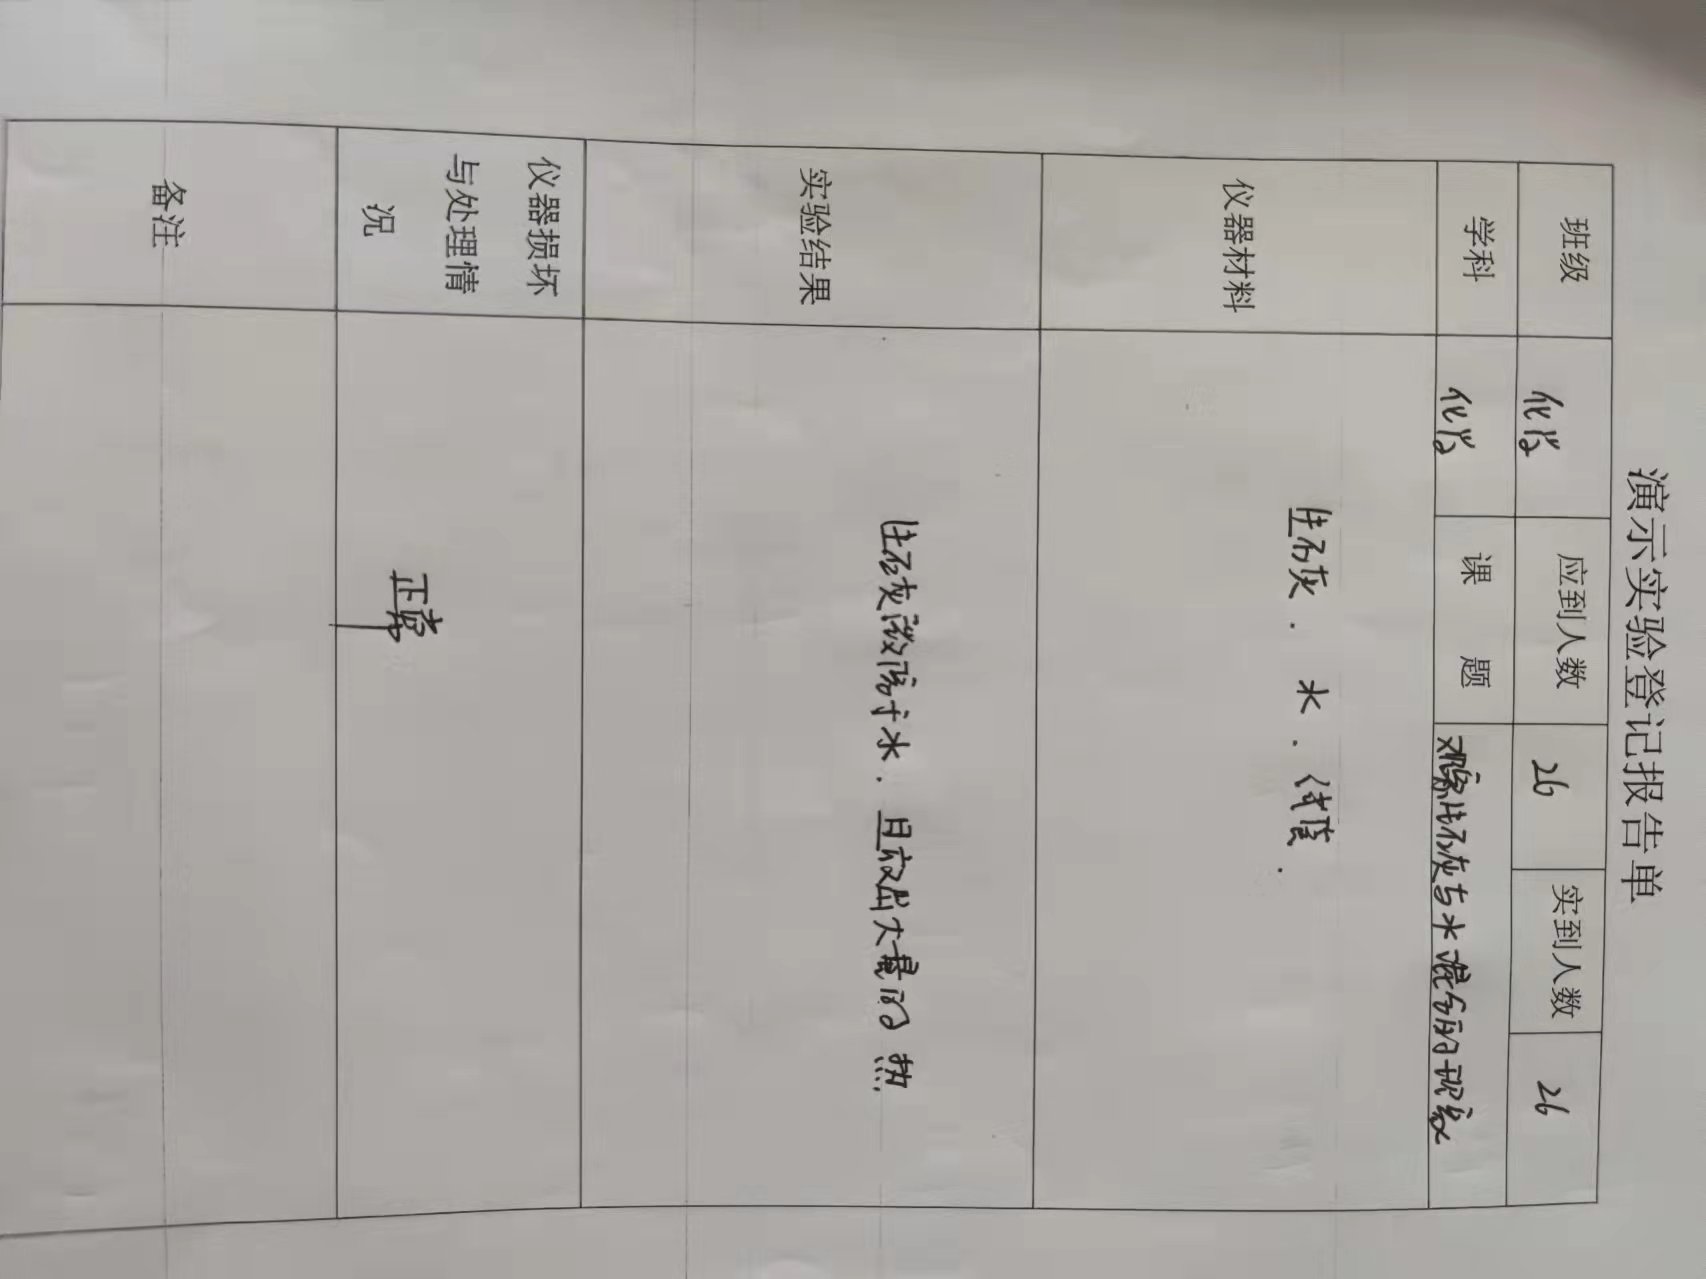 演示实验登记报告单
班级 化学 应到人数 26 实到人数 26
学科 化学 课题 观察生石灰与水混合的现象
仪器材料 生石灰. 水. 试管.
实验结果 生石灰微溶于水. 且放出大量的热
仪器损坏
与处理情
况
正常
备注